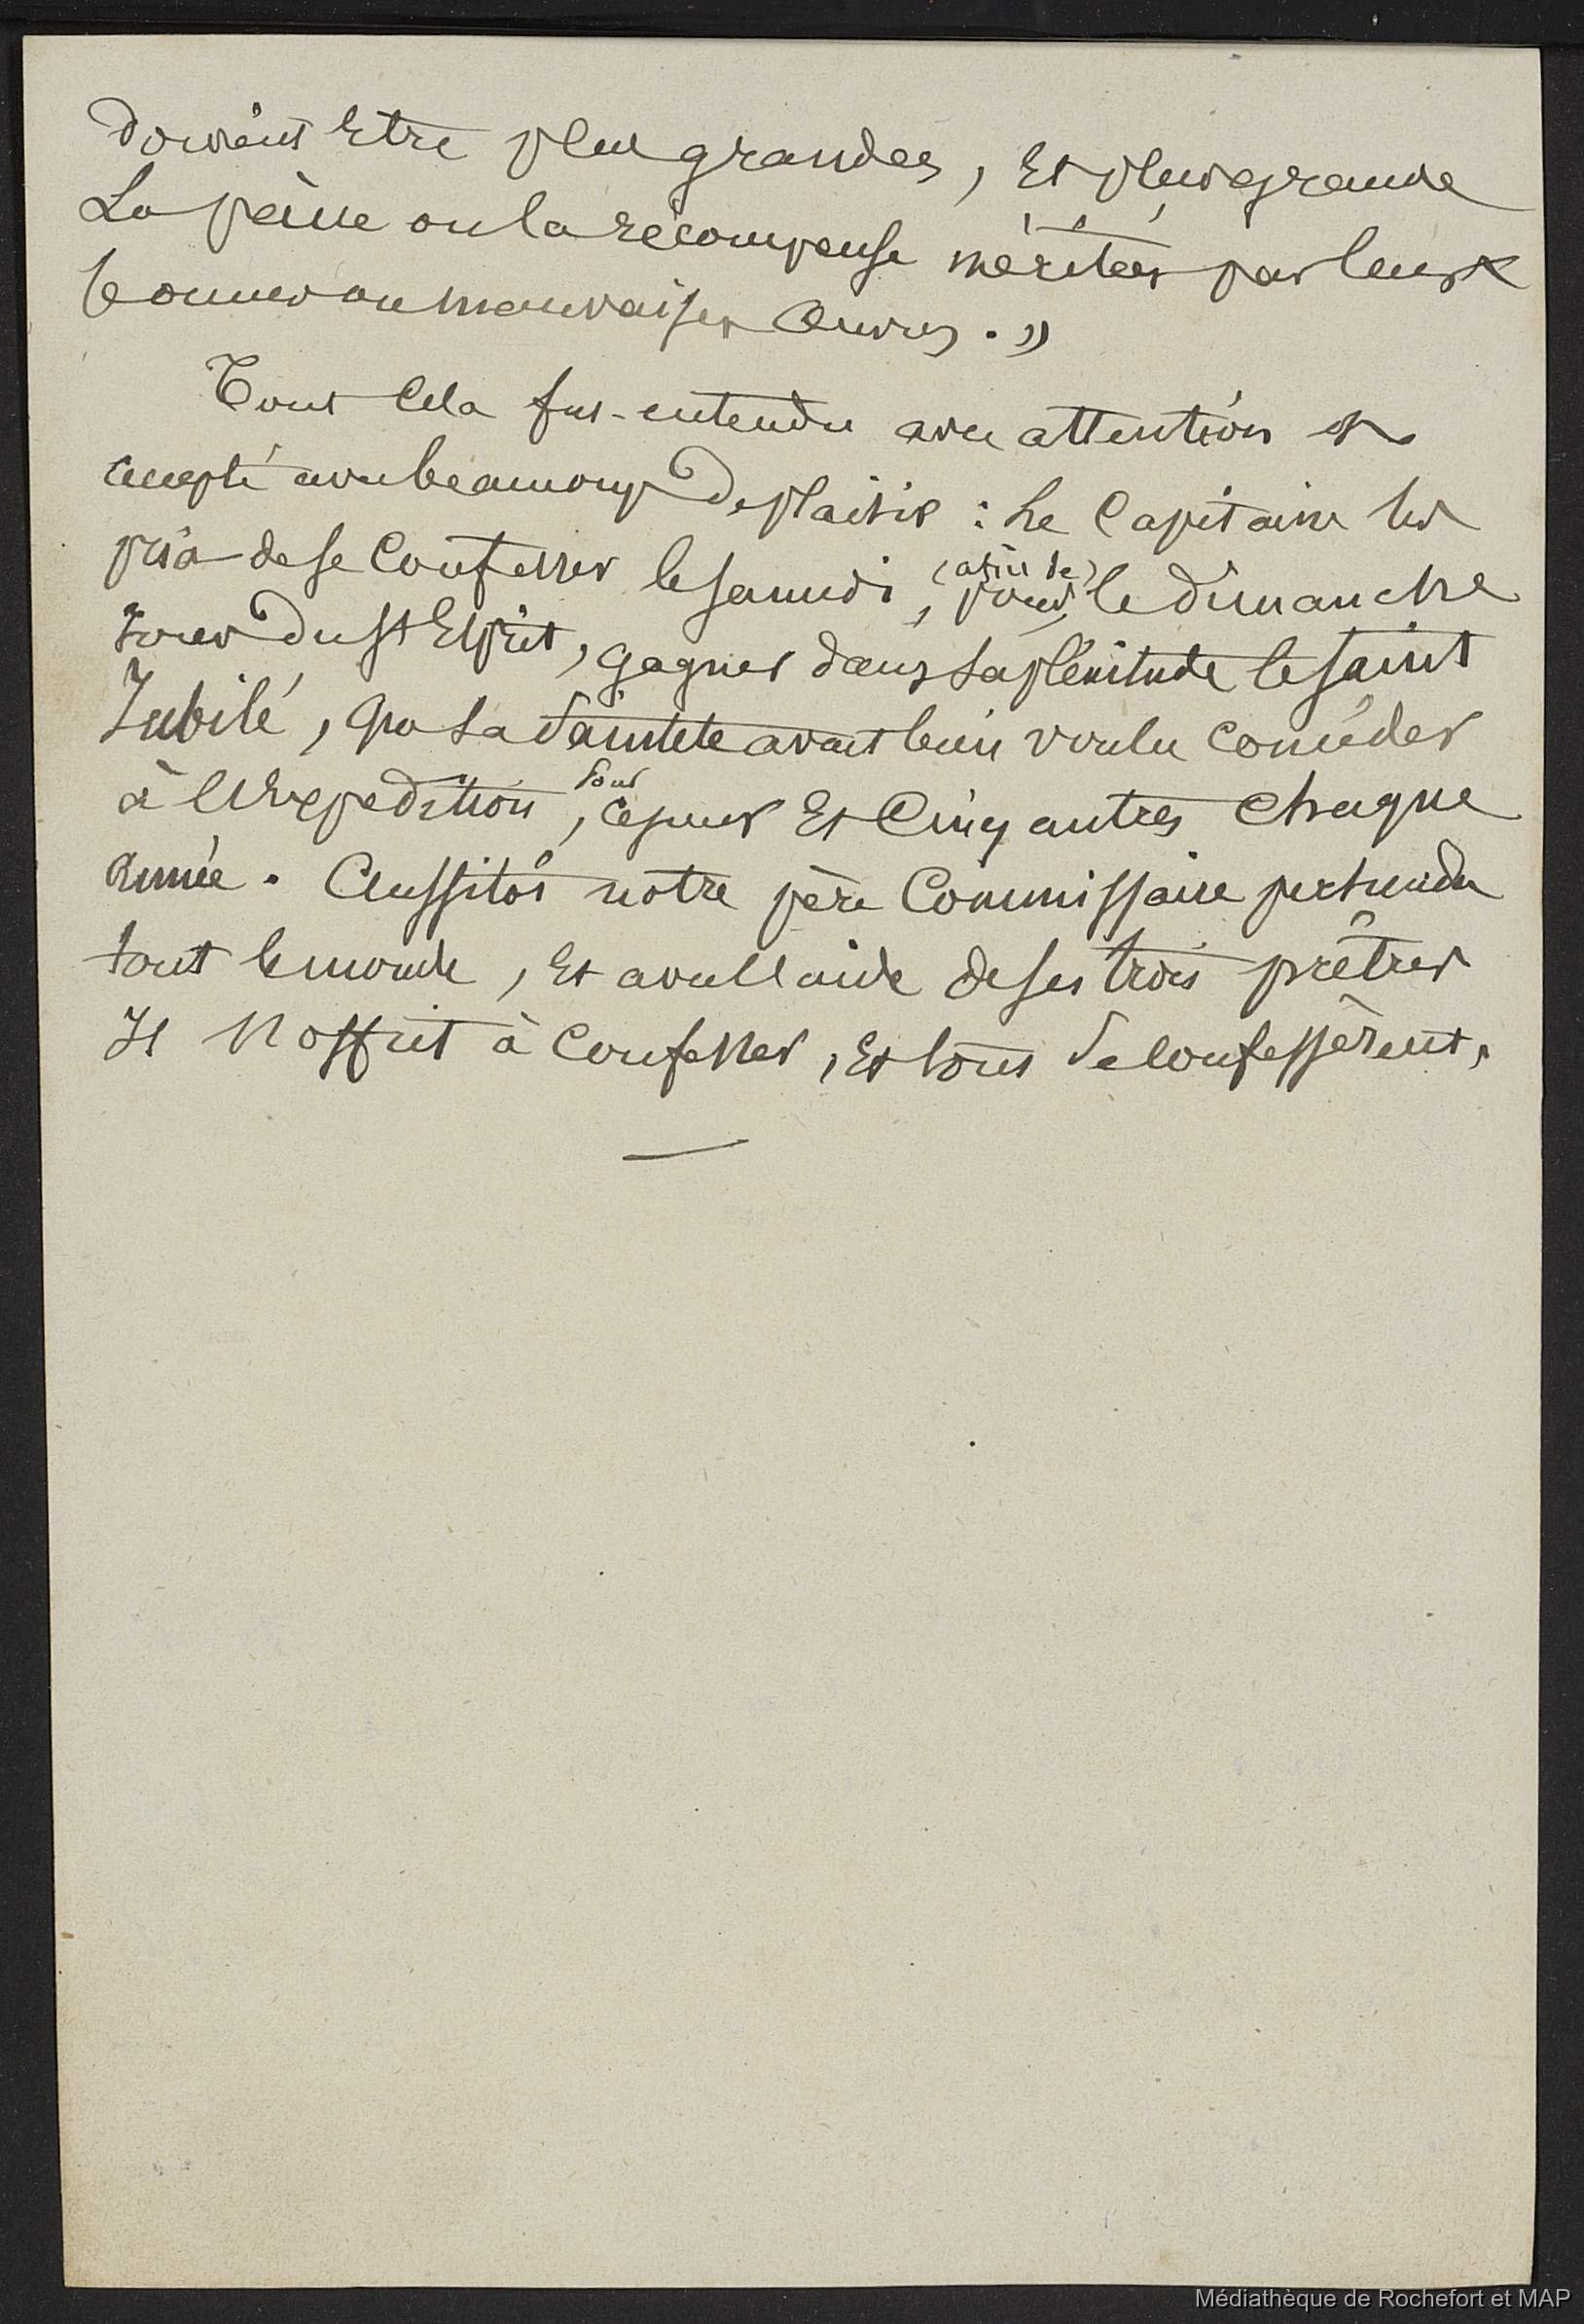 devaient Etre plus grandes, Et plus grande
La peine ou la récompense méritées par leurs
bonnes ou mauvaises Œuvres. »
Tout Cela fut entendu avec attention et
accepté avec beaucoup de plaisir : Le Capitaine les
pria de se Confesser le samedi, pour (afin de) le dimanche
Jour du St Esprit, gagner dans sa plénitude le saint
Jubilé, que sa Sainteté avait bien voulu concéder
à l'Expedition, pour ce jour Et Cinq autres Chaque
Année. Aussitôt notre père Commissaire
tout le monde, Et avec l'aide de ses trois prêtres
Il s'offrit à Confesser, Et tous se confessèrent.
Médiathèque de Rochefort et MAP